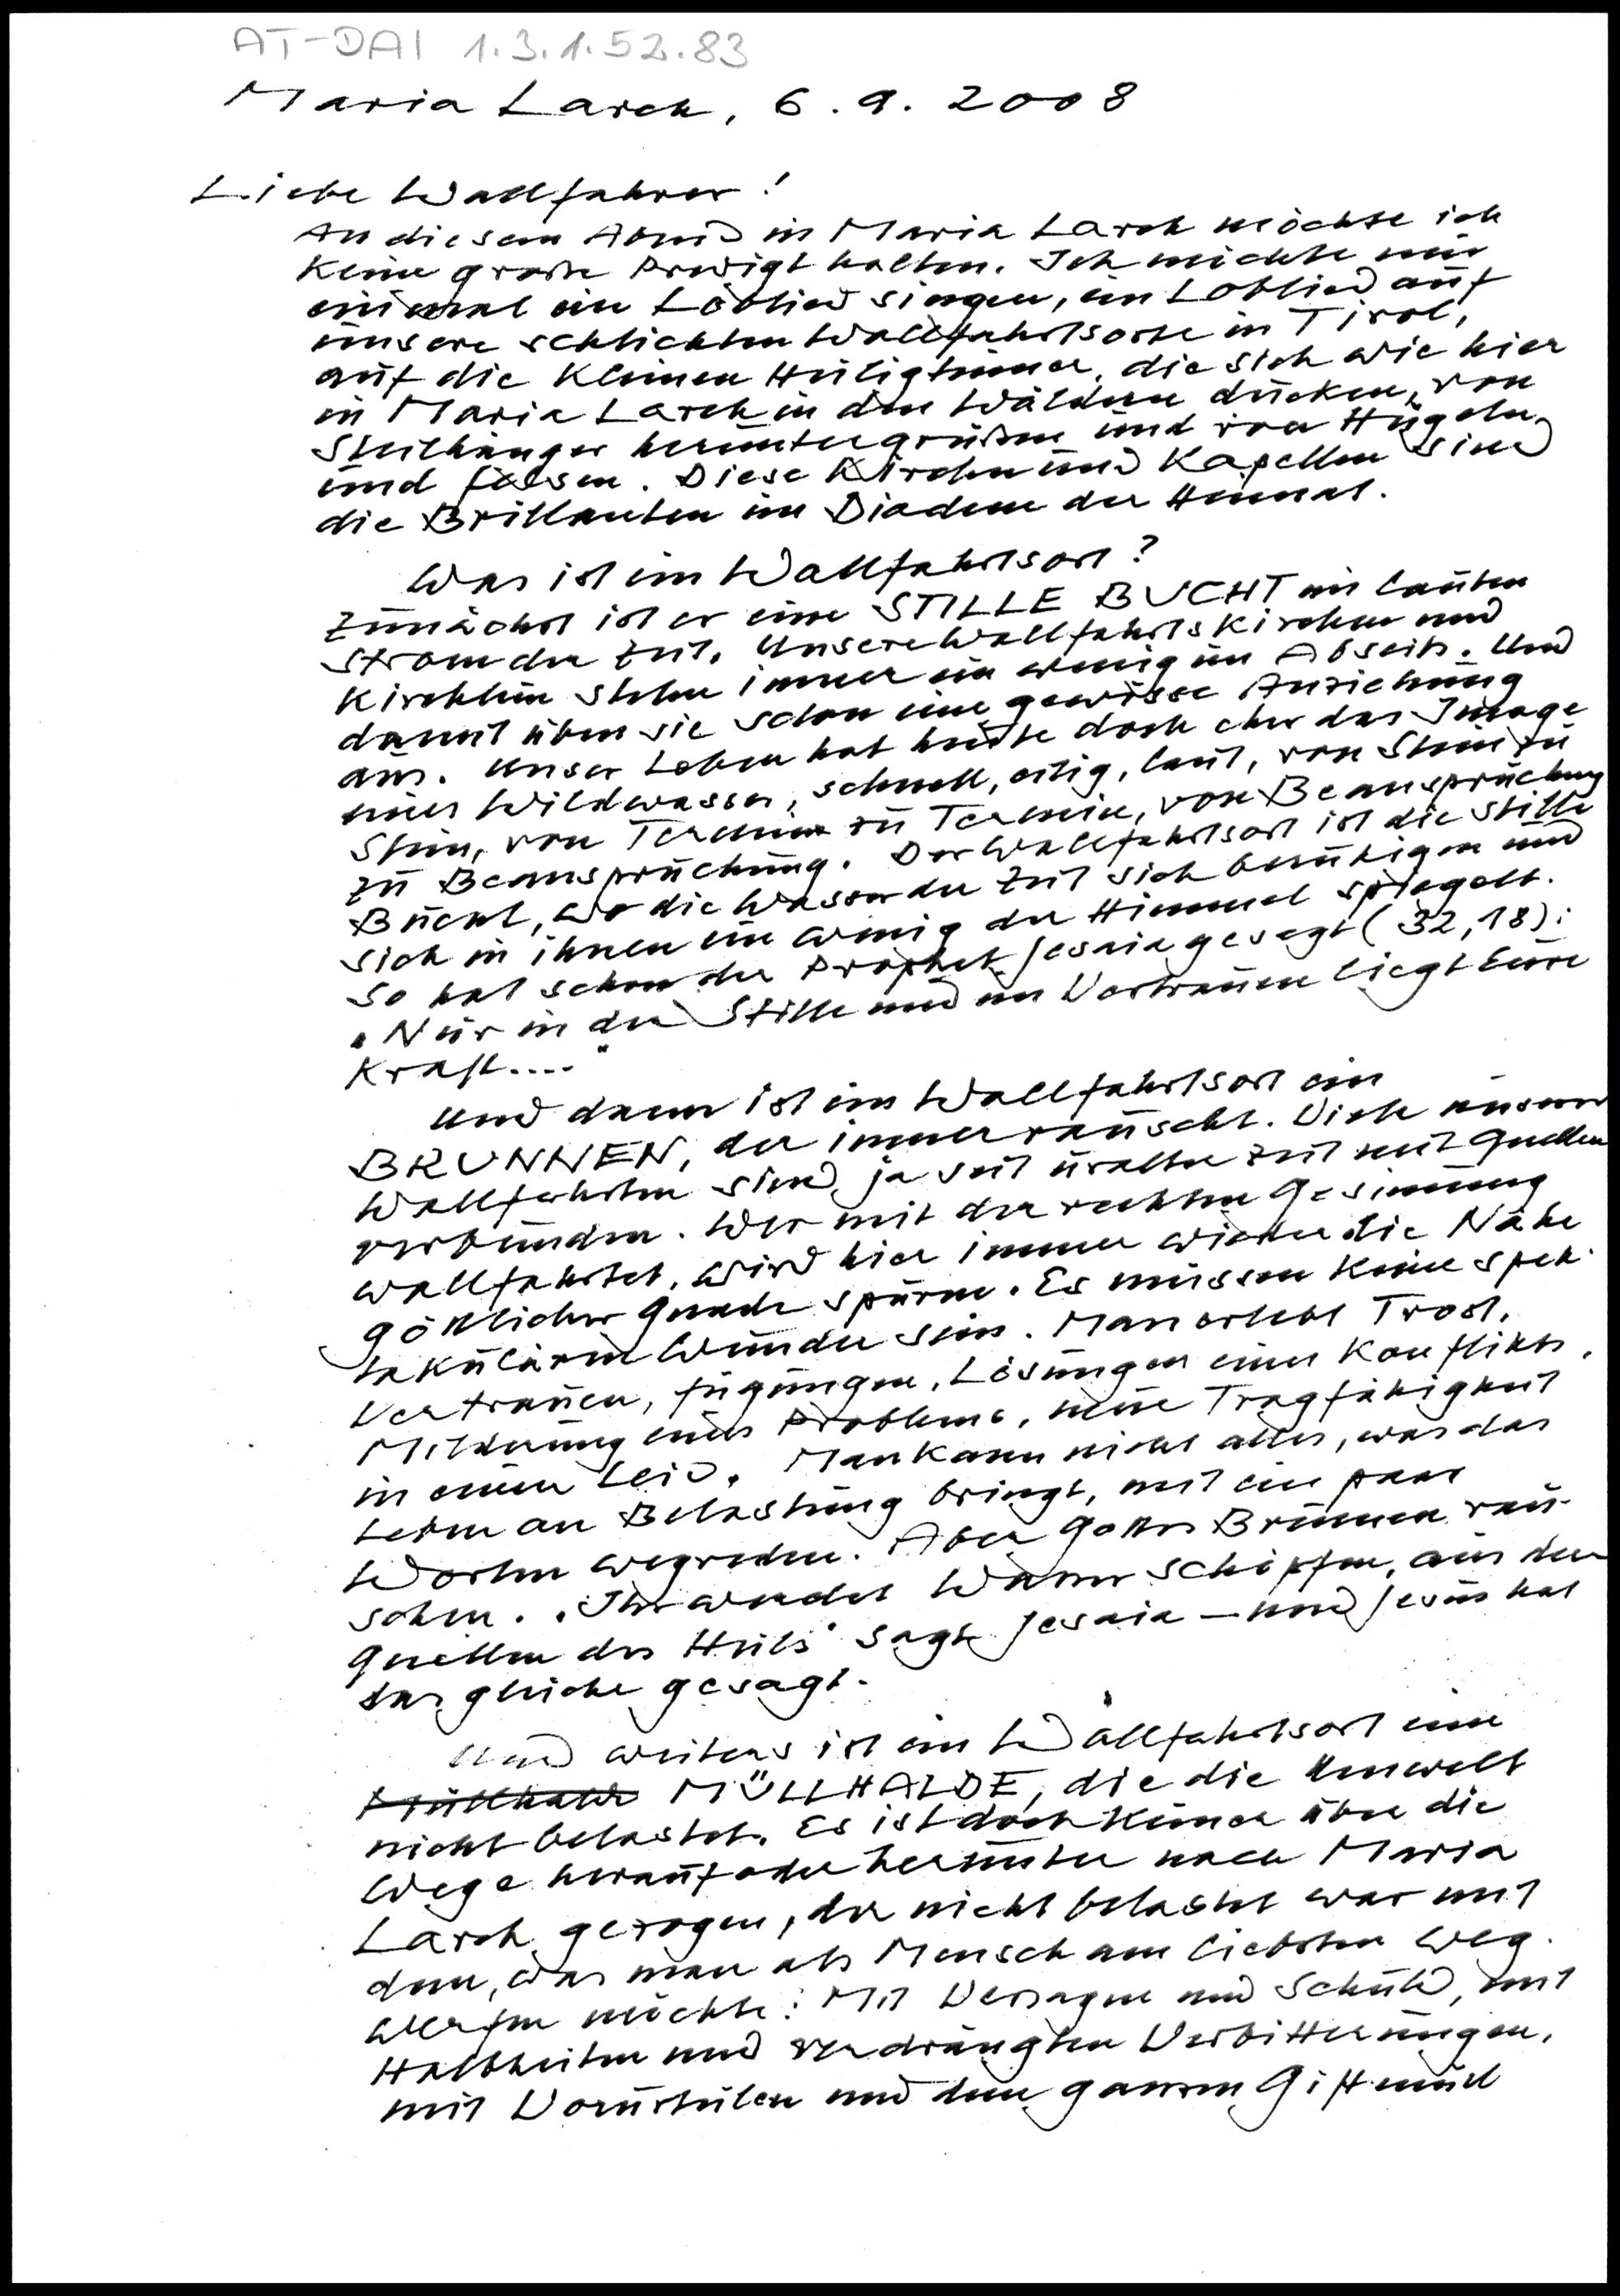 AT-DAI 1.3.1.52.83
Maria Larch, 6.9.2008
Liebe Wallfahrer!
An diesem Abend in Maria Larch möchte ich
keine große Predigt halten. Ich möchte nur
einmal ein Loblied singen, ein Loblied auf
unsere schlichten Wallfahrtsorte in Tirol,
auf die kleinen Heiligtümer, die sich wie hier
in Maria Larch in den Wäldern ducken, von
Steilhängen heruntergrüßen und von Hügeln
und Felsen. Diese Kirchen und Kapellen sind
die Brillanten im Diadem der Heimat.
Was ist ein Wallfahrtsort?
Zunächst ist er eine STILLE BUCHT im lauten
Strom der Zeit. Unsere Wallfahrtskirchen und
Kirchlein stehen immer ein wenig im Abseits. Und
damit üben sie schon eine gewisse Anziehung
aus. Unser Leben hat heute doch eher das Image
eines Wildwassers, schnell, eilig, laut, von Stein zu
Stein, von Termin zu Termin, von Beanspruchung
zu Beanspruchung. Der Wallfahrtsort ist die stille
Bucht, wo die Wasser der Zeit sich beruhigen und
sich in ihnen ein wenig der Himmel spiegelt.
So hat schon der Prophet Jesaia gesagt (32,18):
„Nur in der Stille und im Vertrauen liegt Eure
Kraft...."
Und dann ist ein Wallfahrtsort ein
BRUNNEN, der immer rauscht. Viele unserer
Wallfahrten sind ja seit uralter Zeit mit Quellen
verbunden. Wer mit der rechten Gesinnung
wallfahrtet, wird hier immer wieder die Nähe
göttlicher Gnade spüren. Es müssen keine spek-
takulären Wunder sein. Man erlebt Trost,
Vertrauen, Fügungen, Lösungen eines Konfliktes,
Milderung eines Problems, neue Tragfähigkeit
in einem Leid. Man kann nicht alles, was das
Leben an Belastung bringt, mit ein paar
Worten wegreden. Aber Gottes Brunnen rau-
schen. „Ihr werdet Wasser schöpfen, aus den
Quellen des Heils" sagt Jesaia – und Jesus hat
das gleiche gesagt.
Und weiters ist ein Wallfahrtsort eine
Müllhalde MÜLLHALDE, die die Umwelt
nicht belastet. Es ist doch keiner über die
Wege herauf oder herunter nach Maria
Larch gezogen, der nicht belastet war mit
dem, was man als Mensch am liebsten weg-
werfen möchte: Mit Versagen und Schuld, mit
Halbheiten und verdrängten Verbitterungen,
mit Vorurteilen und dem ganzen Giftmüll